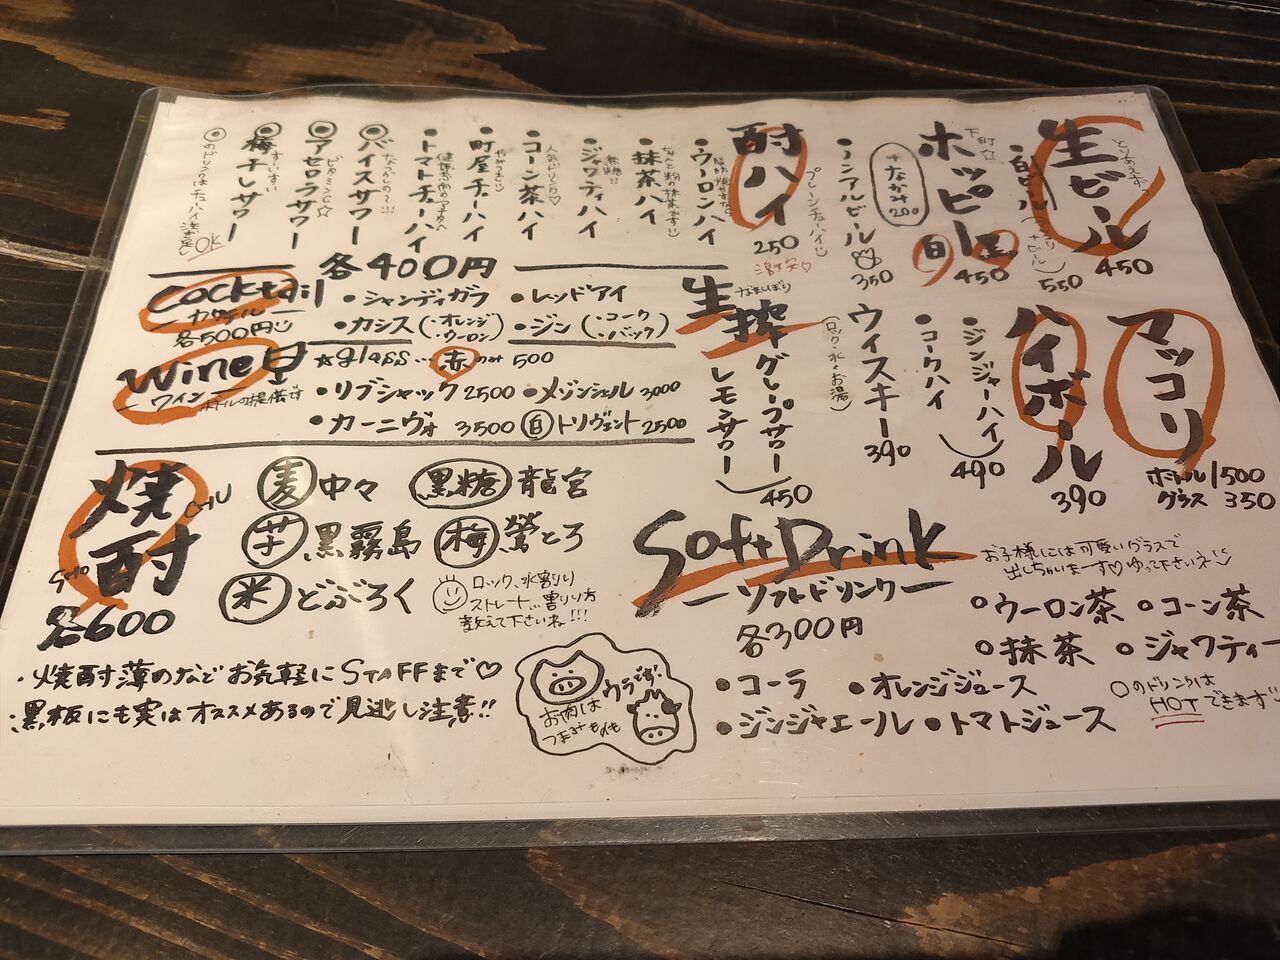 とりあえず
生ビール
450
白ビール
550
マッコリ
ボトル1500
グラス 350
下町
ホッピー
白 黒
450
+なかみ200
・ノンアルビール
350
ハイボール
390
・ジンジャーハイ
・コークハイ
490
ウイスキー
390
(ロック・水・お湯)
酎ハイ
プレーンチューハイ
250
激安♡
・ウーロンハイ
・抹茶ハイ
・ジャワティハイ
無糖!!
・コーン茶ハイ
人気ドリンク♡
・町屋チューハイ
・トマトチューハイ
健康志向のアナタへ
◉バイスサワー
なつかしの〜!!!
◉アセロラサワー
ビタミンC☆
◉梅干しサワー
すっぱい
各400円
◉のドリンクはチューハイ注ぎ足しOK
生搾
なましぼり
グレープサワー
レモンサワー
450
Cocktail
カクテル
各500円
・シャンディガラ
・レッドアイ
・カシス(・オレンジ ・ウーロン)
・ジン(・コーク ・バック)
Wine
ワイン
★glass...赤のみ 500
ボトルの提供です
・リブシャック2500
・メゾンシェル 3000
・カーニヴォ 3500
白トリヴェント2500
焼酎
CHU
SHO
各600
麦 中々
黒糖 龍宮
芋 黒霧島
梅 鶯とろ
米 どぶろく
ロック、水割り
ストレート...割り方
教えて下さいね!!!
・焼酎薄めなどお気軽にSTAFFまで♡
・黒板にも実はオススメあるので見逃し注意!!
お肉は
つまみものも
ウラです
Soft Drink
ソフトドリンク
各300円
お子様には可愛いグラスで
出しちゃいまーす♡ゆって下さいネ
○ウーロン茶
○コーン茶
○抹茶
○ジャワティー
・コーラ
・オレンジジュース
・ジンジャエール
・トマトジュース
○のドリンクは
HOTできます